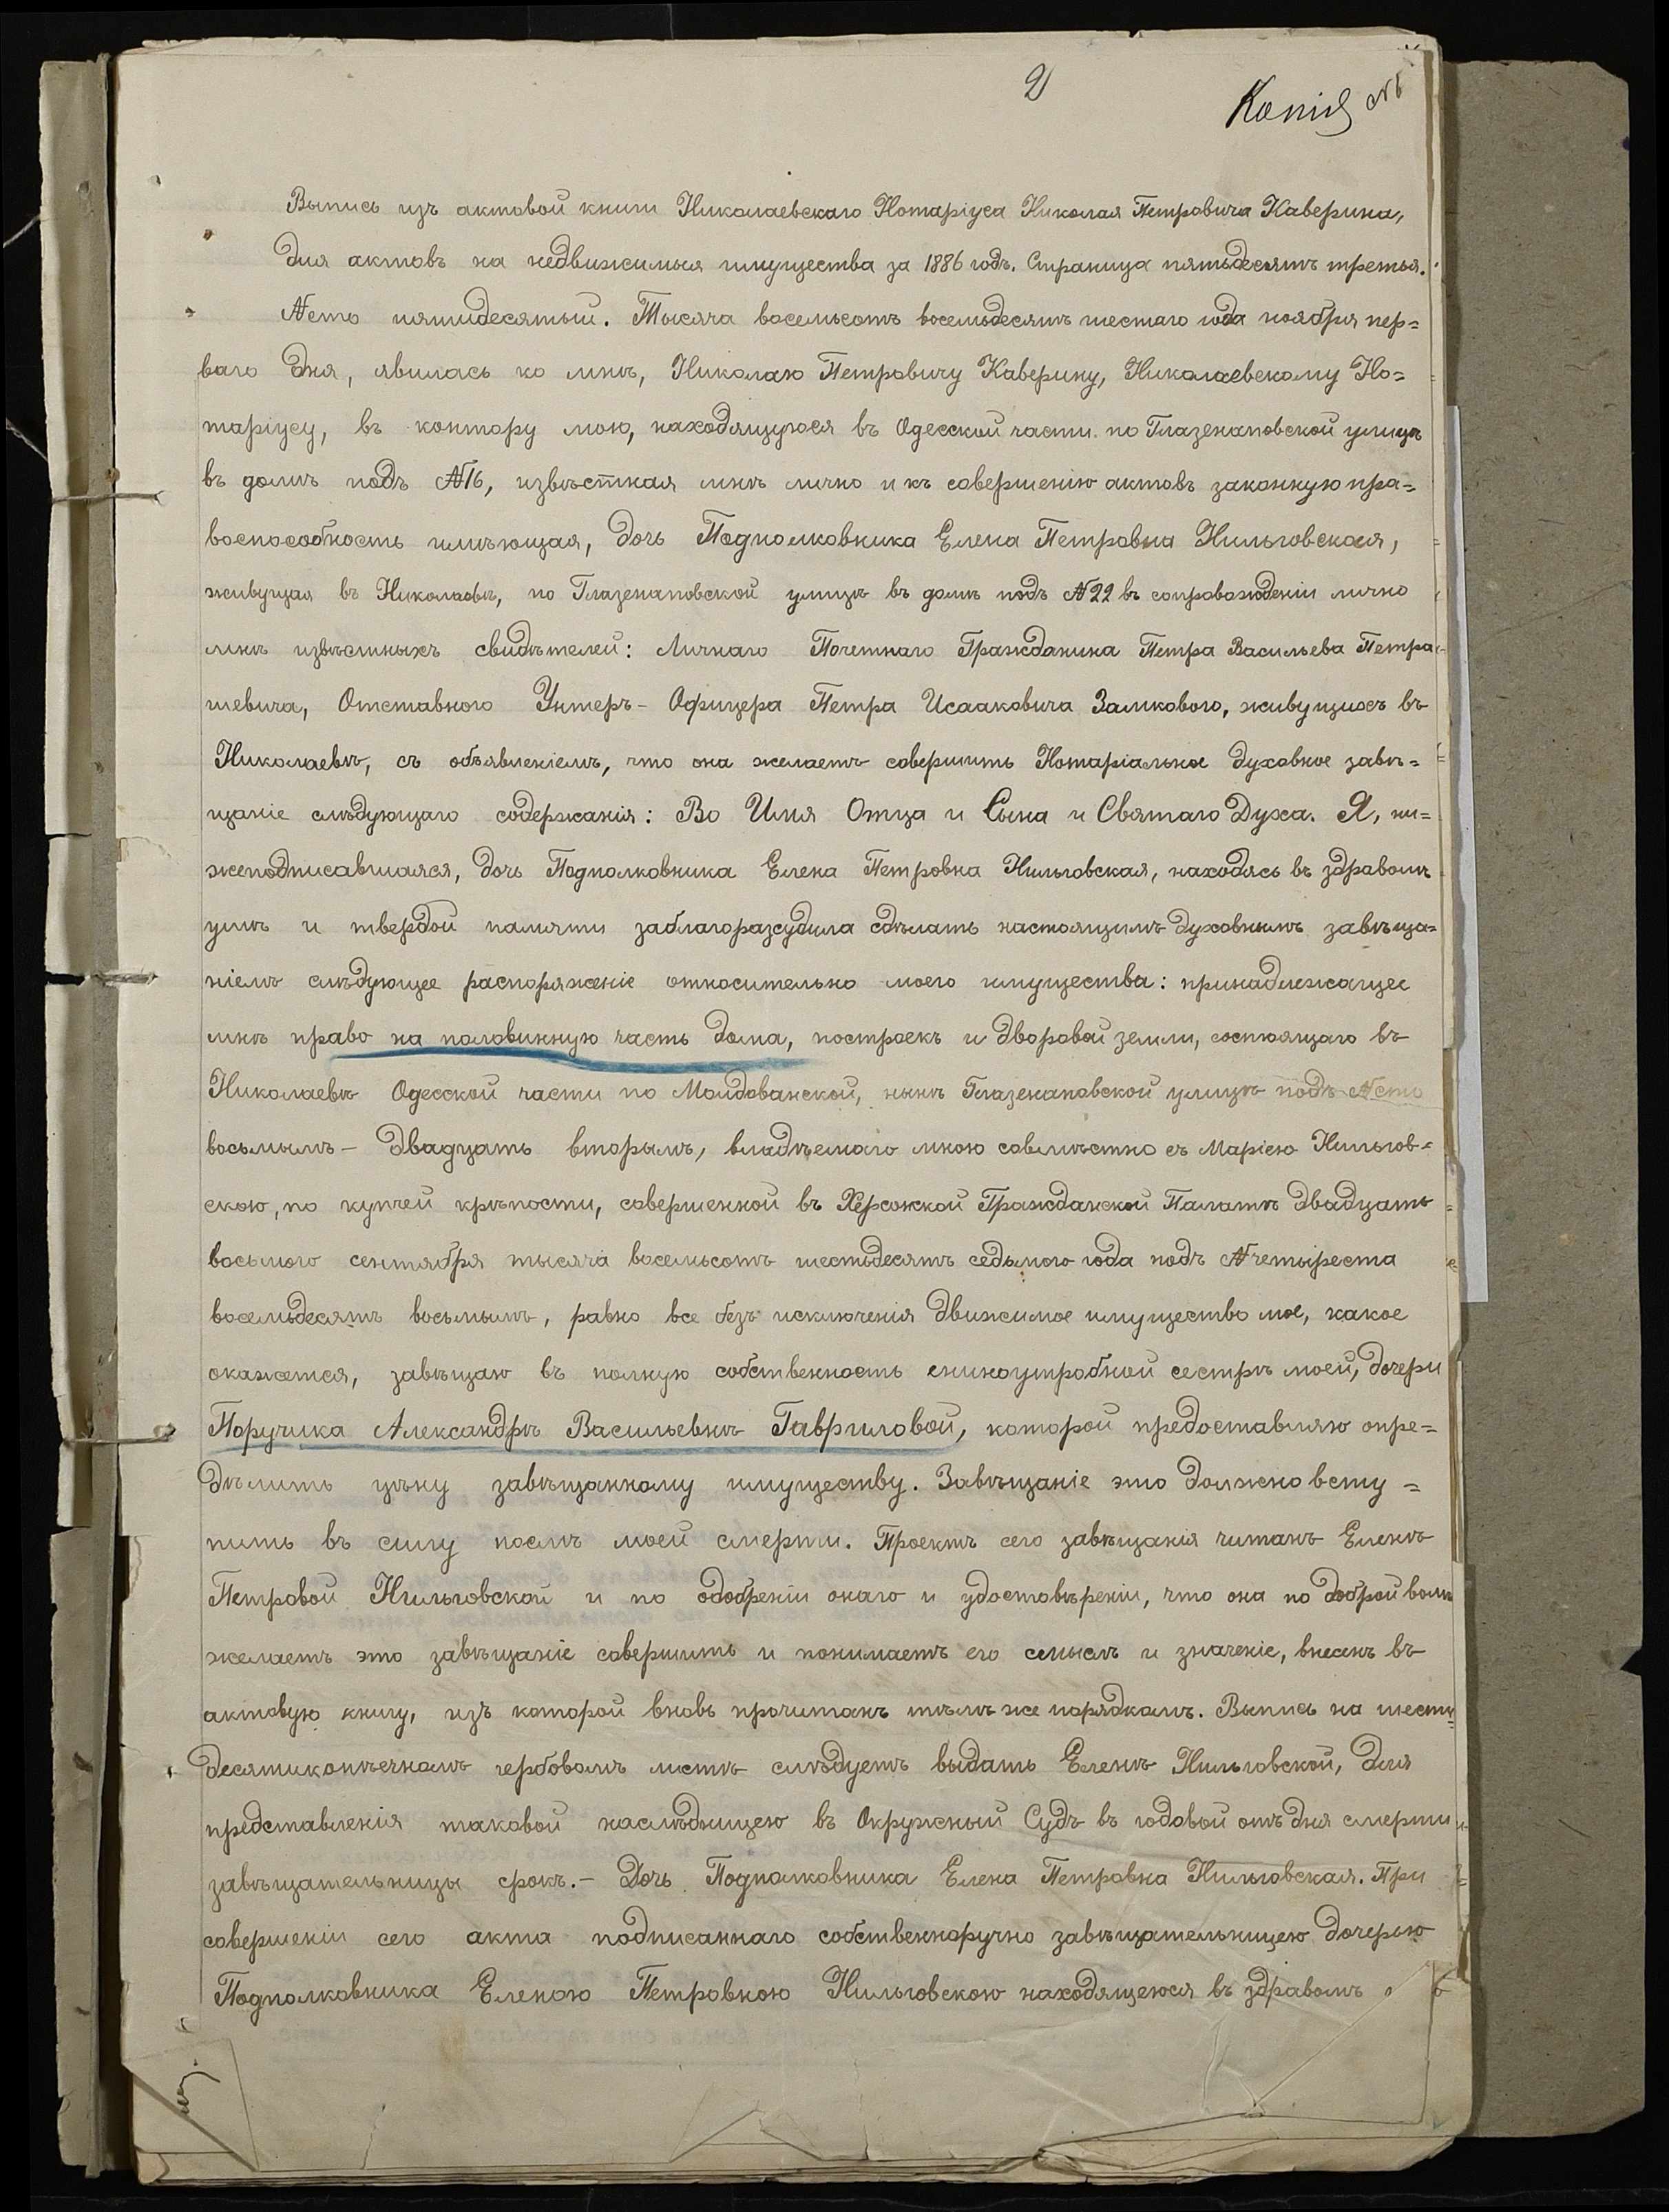 2
Копія №1
Выпись изъ актовой книги Николаевскаго Нотаріуса Николая Петровича Каверина,
для актовъ на недвижимыя имущества за 1886 годъ. Страница пятьдесятъ третья.
№ето пятидесятый. Тысяча восемьсотъ восемьдесятъ шестаго года ноября пер=
ваго дня, явилась ко мнѣ, Николаю Петровичу Каверину, Николаевскому Но=
таріусу, въ контору мою, находящуюся въ Одесской части по Глазенаповской улицѣ
въ домѣ подъ №16, извѣстная мнѣ лично и къ совершенію актовъ законную пра=
воспособность имѣющая, дочь Подполковника Елена Петровна Нильговская,
живущая въ Николаевѣ, по Глазенаповской улицѣ въ домѣ подъ №22 въ сопровожденіи лично
мнѣ извѣстныхъ свидѣтелей: Личнаго Почетнаго Гражданина Петра Васильева Петра=
шевича, Отставного Унтеръ-Офицера Петра Исааковича Замкового, живущихъ въ
Николаевѣ, съ объявленіемъ, что она желаетъ совершить Нотаріальное духовное завѣ=
щаніе слѣдующаго содержанія: Во Имя Отца и Сына и Святаго Духа. Я, ни=
жеподписавшаяся, дочь Подполковника Елена Петровна Нильговская, находясь въ здравомъ
умѣ и твердой памяти заблагоразсудила сдѣлать настоящимъ духовнымъ завѣща=
ніемъ слѣдующее распоряженіе относительно моего имущества: принадлежащее
мнѣ право на половинную часть дома, построекъ и дворовой земли, состоящаго въ
Николаевѣ Одесской части по Молдованской, нынѣ Глазенаповской улицѣ подъ №сто
восьмымъ - двадцать вторымъ, владѣемаго мною совмѣстно съ Маріею Нильгов=
скою, по купчей крѣпости, совершенной въ Херсонской Гражданской Палатѣ двадцать
восьмого сентября тысяча восемьсотъ шестьдесятъ седьмого года подъ № четыреста
восемьдесятъ восьмымъ, равно все безъ исключенія движимое имущество мое, какое
окажется, завѣщаю въ полную собственность единоутробной сестрѣ моей, дочери
Поручика Александрѣ Васильевнѣ Гавриловой, которой предоставляю опре=
дѣлить цѣну завѣщанному имуществу. Завѣщаніе это должно всту=
пить въ силу послѣ моей смерти. Проектъ сего завѣщанія читанъ Еленѣ
Петровой Нильговской и по одобреніи онаго и удостовѣреніи, что она по доброй волѣ
желаетъ это завѣщаніе совершить и понимаетъ его смыслъ и значеніе, внесенъ въ
актовую книгу, изъ которой вновь прочитанъ тѣмъ же порядкомъ. Выпись на шести=
десятикопѣечномъ гербовомъ листѣ слѣдуетъ выдать Еленѣ Нильговской, для
представленія таковой наслѣдницею въ Окружный Судъ въ годовой отъ дня смерти
завѣщательницы срокъ.- Дочь Подполковника Елена Петровна Нильговская. При
совершеніи сего акта подписаннаго собственноручно завѣщательницею дочерью
Подполковника Еленою Петровною Нильговскою находящеюся въ здравомъ